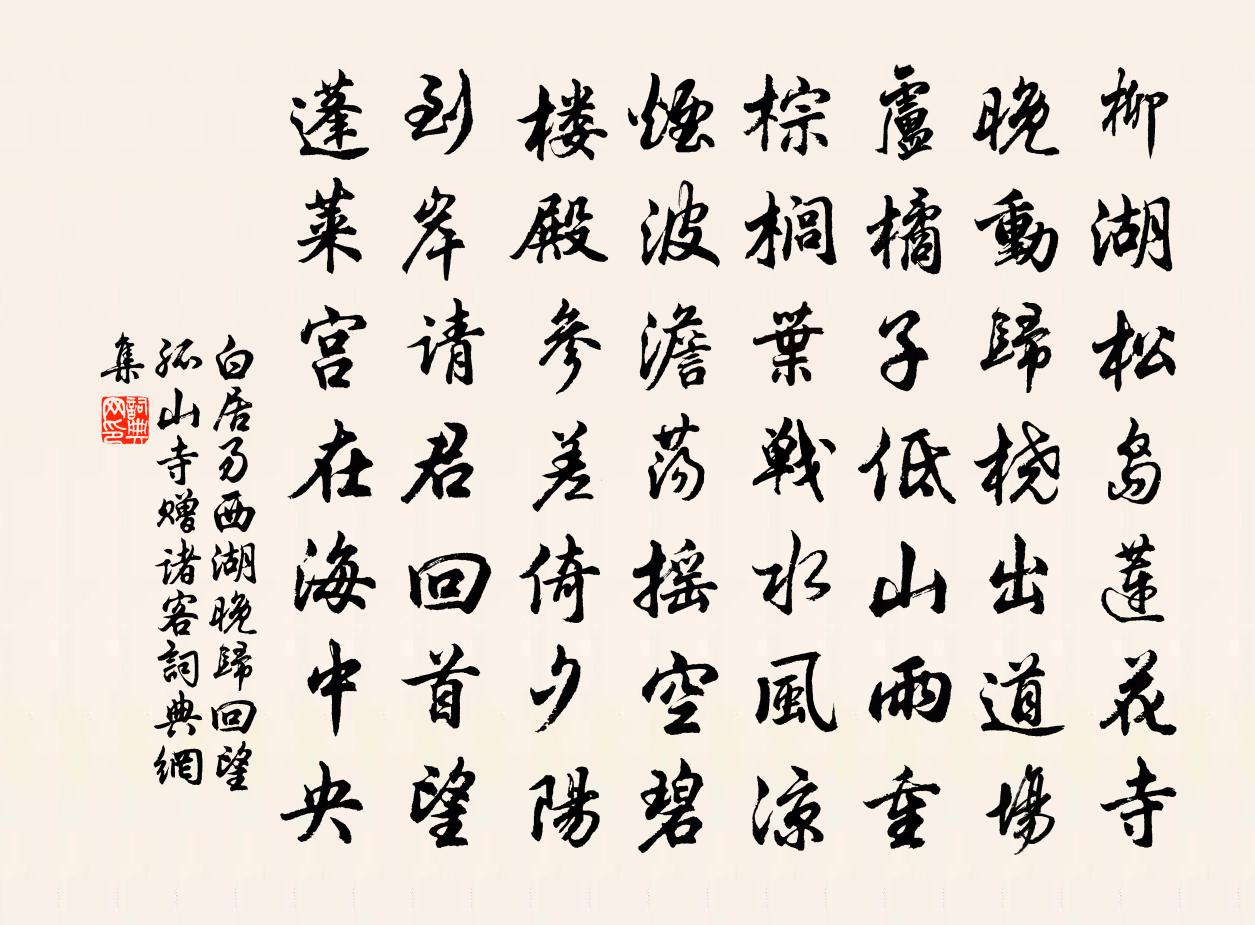 柳湖松岛蓮花寺
晚動歸桡出道場
盧橘子低山雨重
棕榈葉戰水風凉
煙波澹荡摇空碧
楼殿參差倚夕陽
到岸请君回首望
蓬莱宫在海中央
白居易西湖晚歸回望
孤山寺赠诸客詞典網
集
詞典
网印